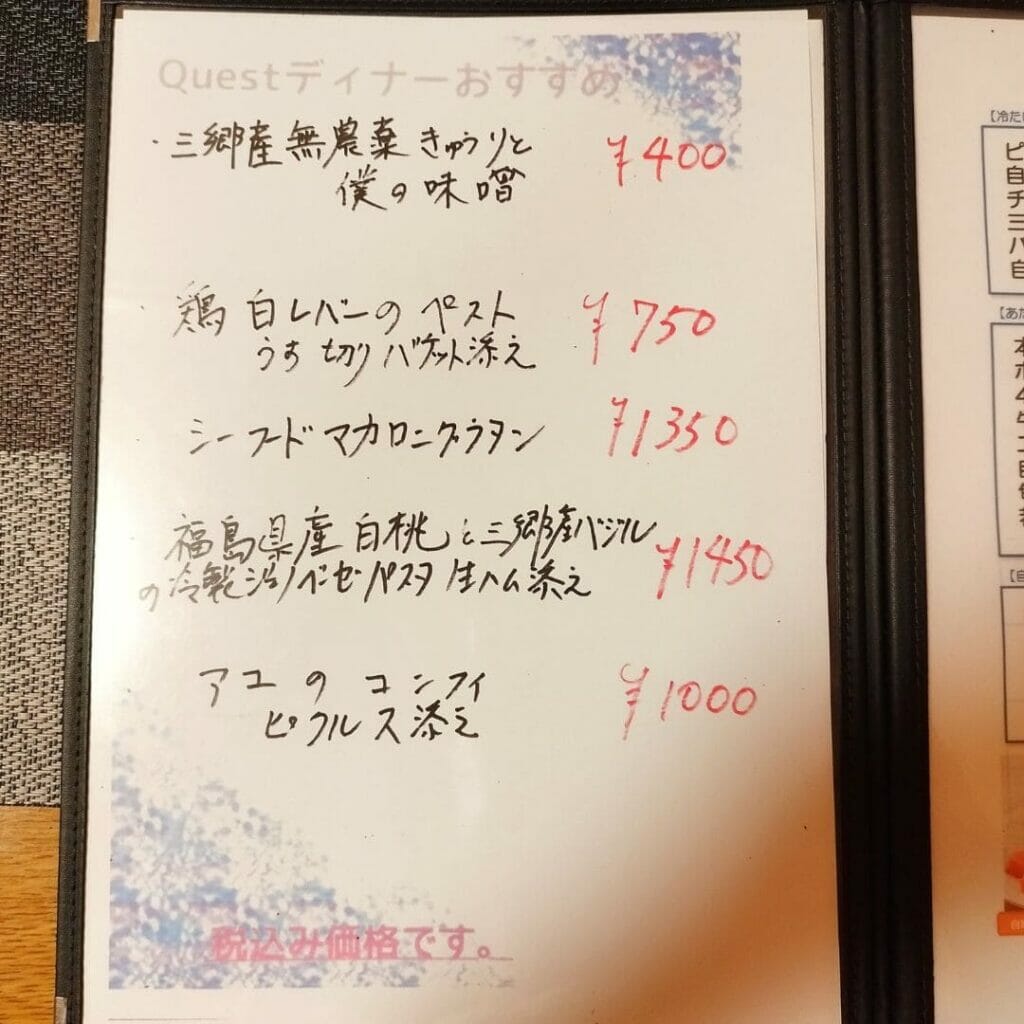 Questディナーおすすめ
・三郷産無農薬きゅうりと ¥400
僕の味噌
・鶏白レバーのペースト ¥750
うす切りバゲット添え
シーフードマカロニグラタン ¥1350
福島県産白桃と三郷産バジル ¥1450
の冷製ジェノベーゼパスタ 生ハム添え
アユのコンフィ ¥1000
ピクルス添え
税込み価格です。